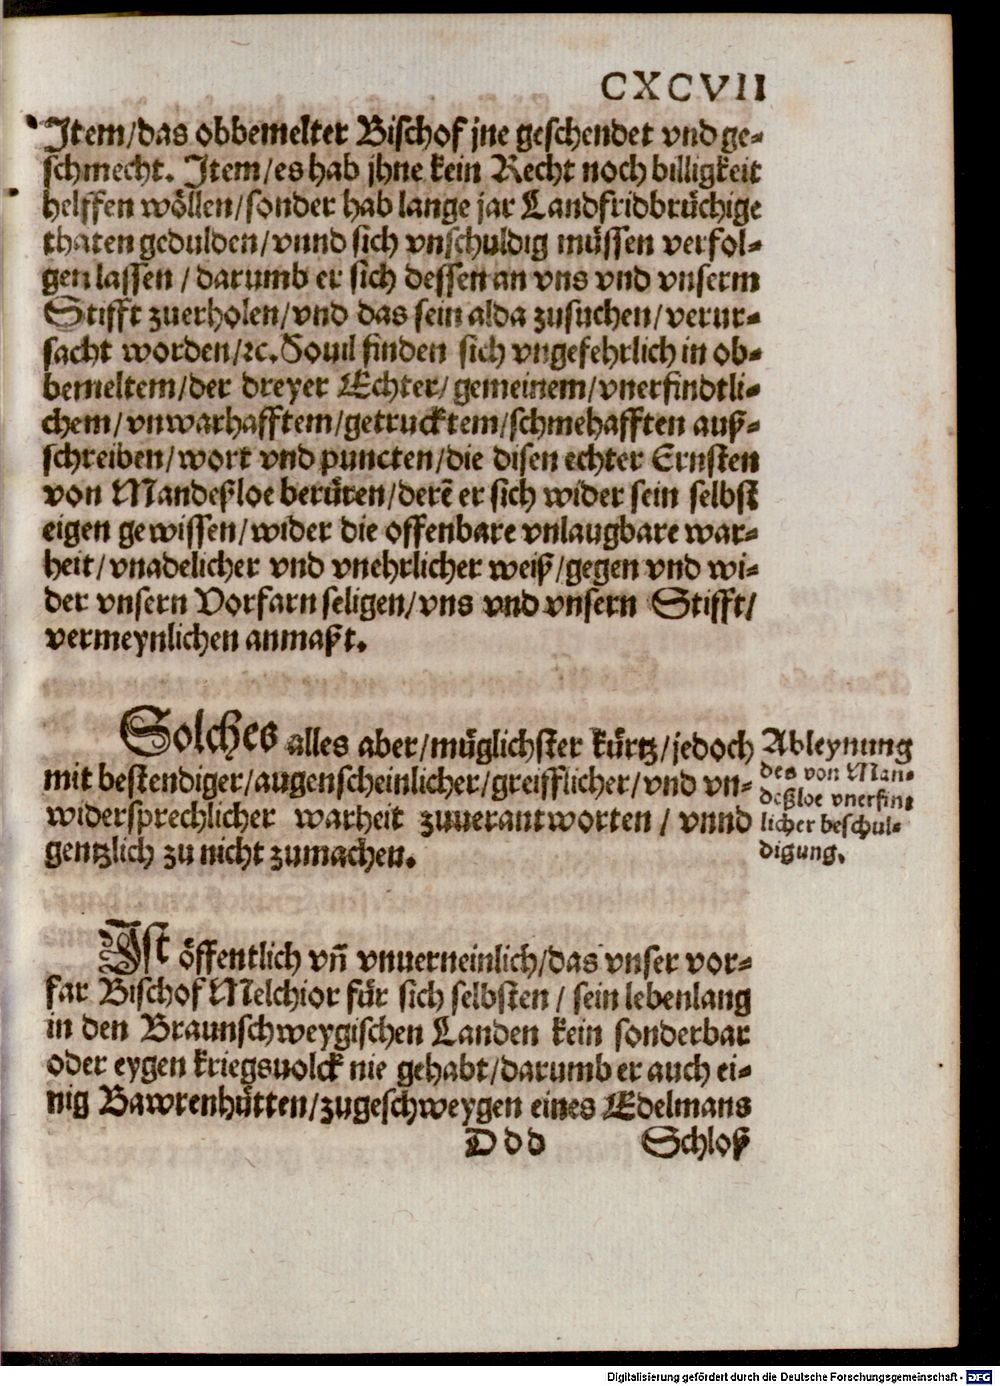 CXCVII
Item/das obbemelter Bischof jne geschendet vnd ge-
schmecht. Item/es hab jhne kein Recht noch billigkeit
helffen wöllen/sonder hab lange jar Landfridbrüchige
thaten gedulden/vnnd sich vnschuldig müssen verfol-
gen lassen / darumb er sich dessen an vns vnd vnserm
Stifft zuerholen/vnd das sein alda zusuchen/verur-
sacht worden/ꝛc. Souil finden sich vngefehrlich in ob-
bemeltem/der dreyer Echter/gemeinem/vnerfindtli-
chem/vnwarhafftem/getrucktem/schmehafften auß-
schreiben/wort vnd puncten/die disen echter Ernsten
von Mandeßloe berüren/derē er sich wider sein selbst
eigen gewissen/wider die offenbare vnlaugbare war-
heit/vnadelicher vnd vnehrlicher weiß/gegen vnd wi-
der vnsern Vorfarn seligen/vns vnd vnsern Stifft/
vermeynlichen anmaßt.
Solches alles aber/müglichster kürtz/jedoch
mit bestendiger/augenscheinlicher/greifflicher/vnd vn-
widersprechlicher warheit zuuerantworten / vnnd
gentzlich zu nicht zumachen.
Ableynung
des von Man-
deßloe vnerfin-
licher beschul-
digung.
Ist öffentlich vn̄ vnuerneinlich/das vnser vor-
far Bischof Melchior für sich selbsten / sein lebenlang
in den Braunschweygischen Landen kein sonderbar
oder eygen kriegsuolck nie gehabt/darumb er auch ei-
nig Bawrenhütten/zugeschweygen eines Edelmans
D d d Schloß
Digitalisierung gefördert durch die Deutsche Forschungsgemeinschaft - DFG